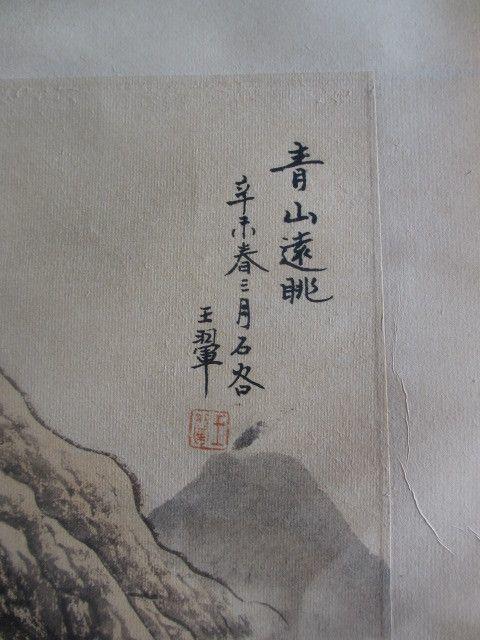 青山遠眺
辛未春三月石谷
王翬